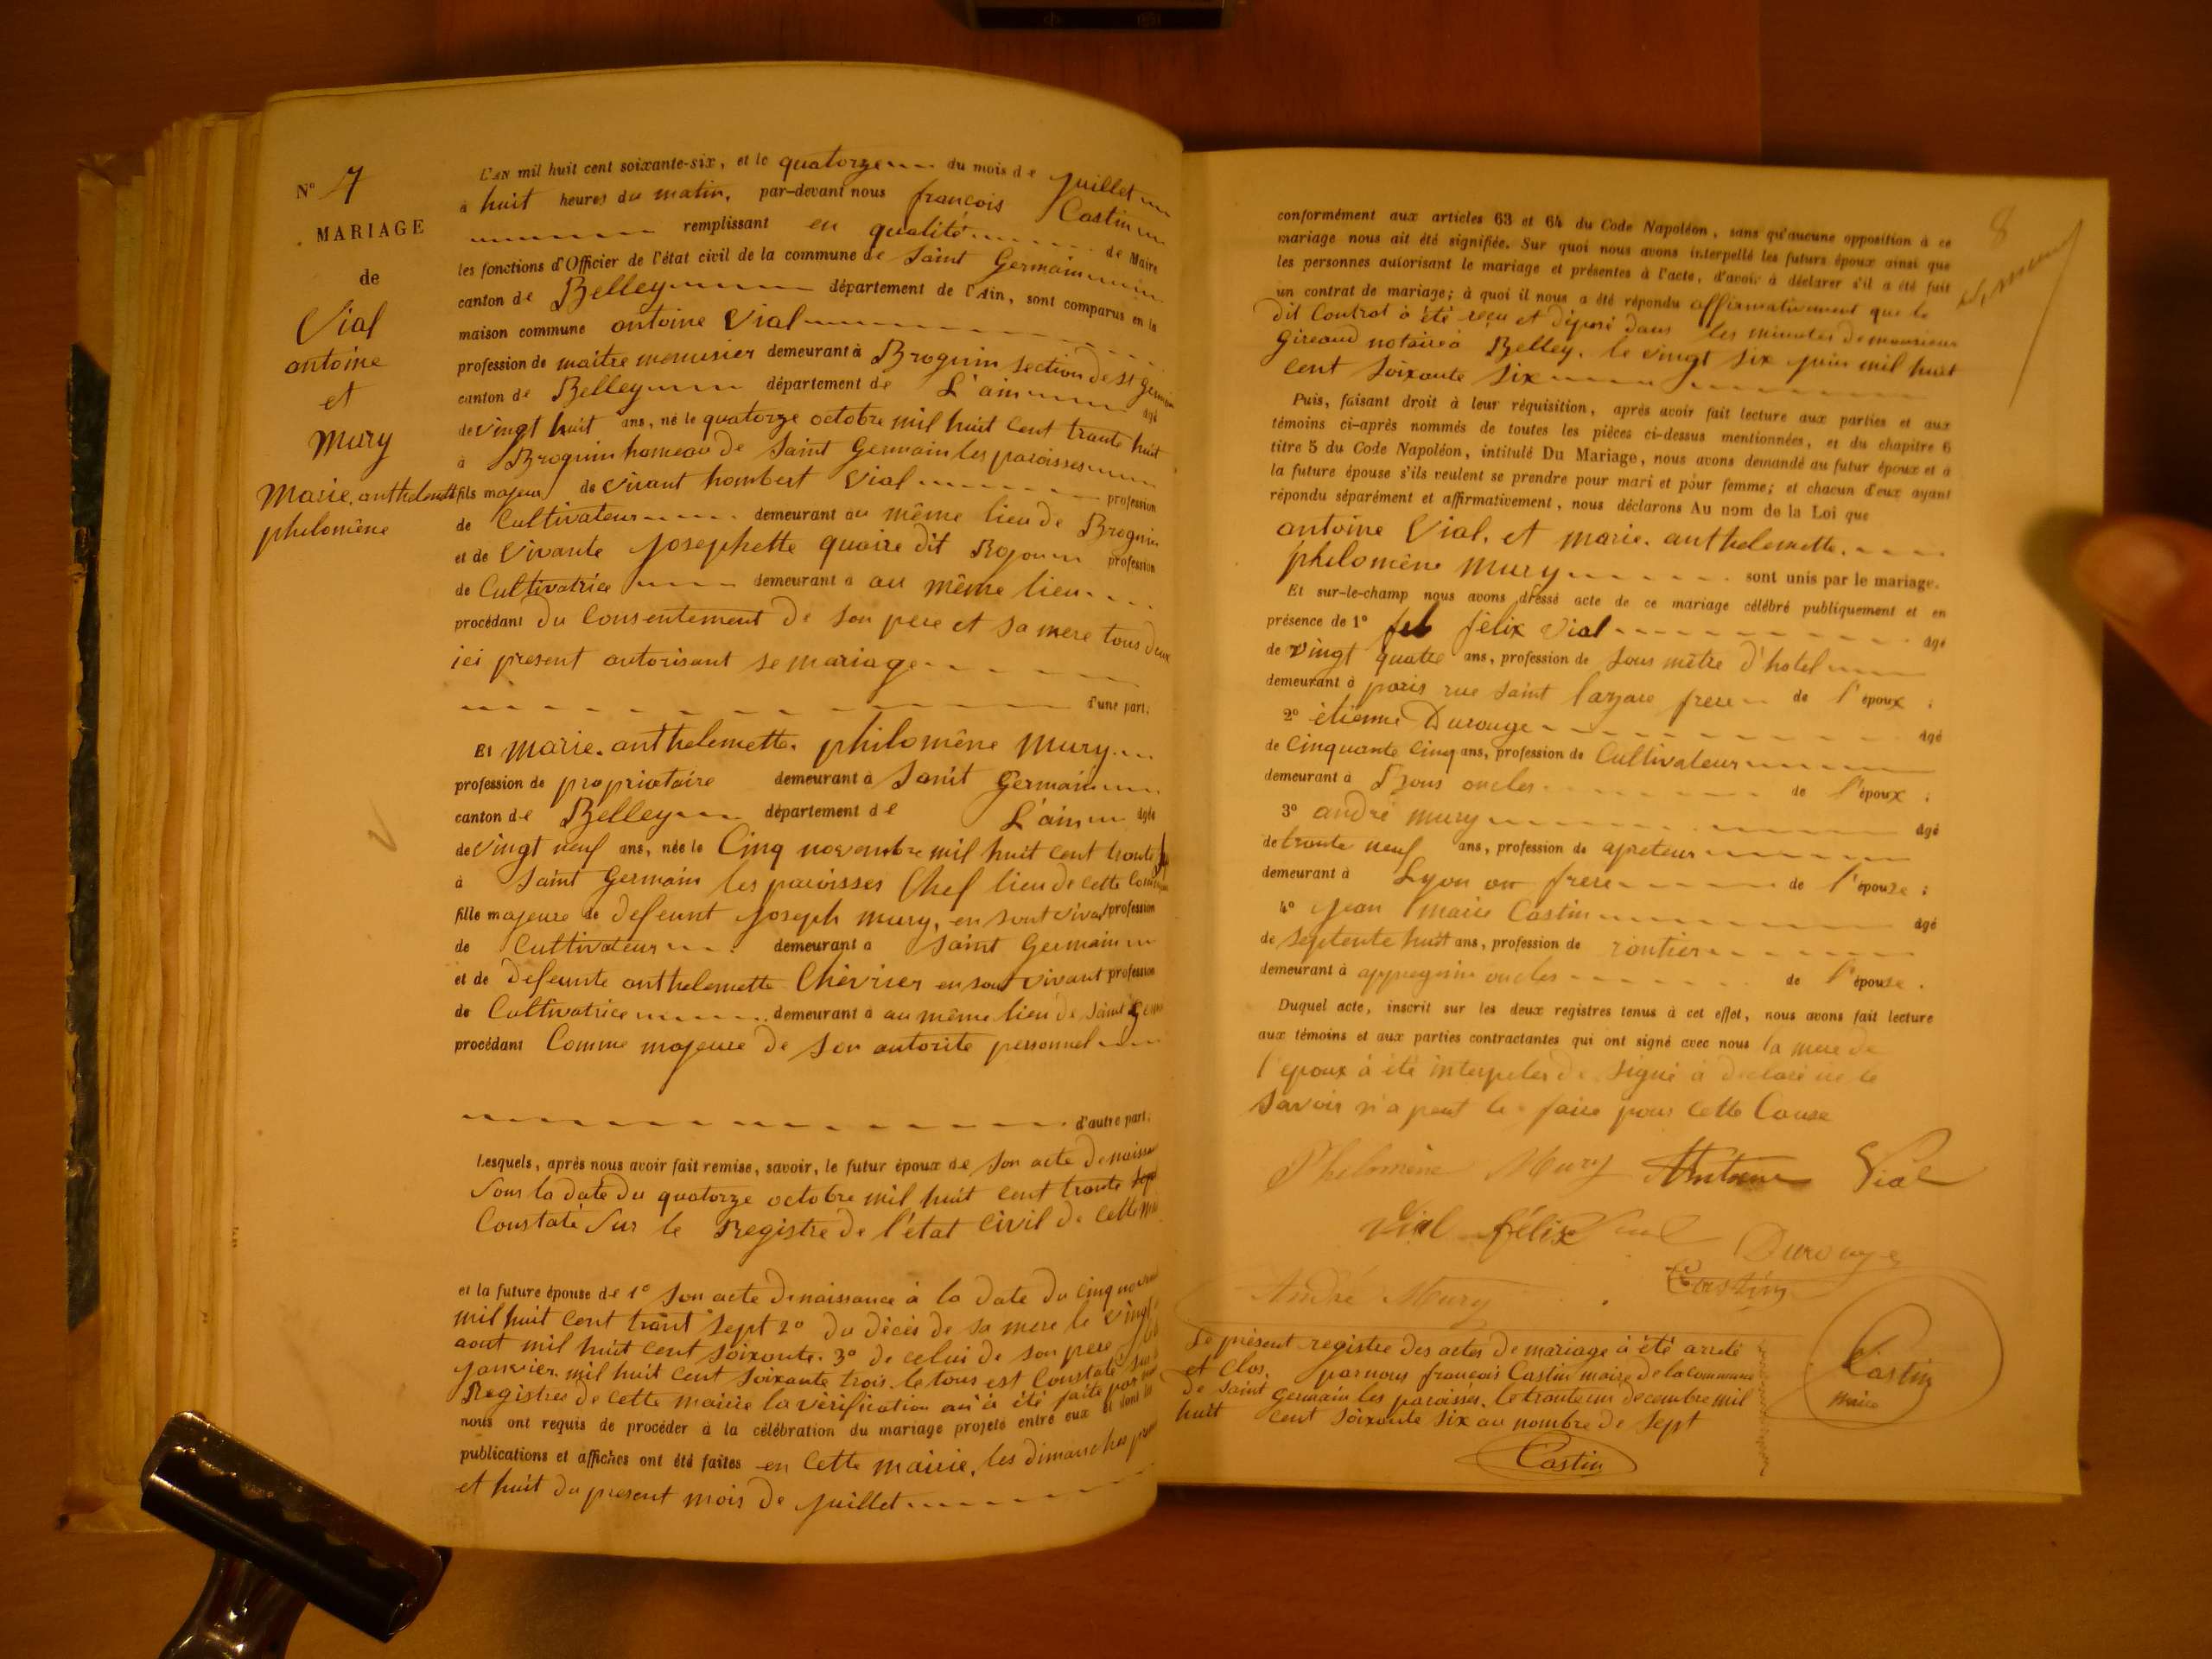 N° 7
MARIAGE
de
Vial
antoine
et
Mury
Marie. anthelemette
philomène
L'AN mil huit cent soixante-six, et le quatorze du mois de juillet
à huit heures du matin, par-devant nous françois Castin
remplissant en qualité de Maire
les fonctions d'Officier de l'état civil de la commune de Saint Germain
canton de Belley département de l'Ain, sont comparus en la
maison commune antoine Vial
profession de maitre menusier demeurant à Brognin section de St Germain
canton de Belley département de L'ain âgé
de vingt huit ans, né le quatorze octobre mil huit cent trante huit
à Brognin hameau de Saint Germain les paroisses
fils majeur de vivant hombert Vial profession
de Cultivateur demeurant au même lieu de Brognin
et de Vivante Josephette quaire dit profession
de Cultivatrice demeurant à au même lieu
procédant du Consentement de son pere et sa mere tous deux
ici present autorisant se mariage
d'une part.
Et Marie. anthelemette. philomène Mury
profession de propriataire demeurant à Saint Germain
canton de Belley département de L'ain âgée
de Vingt neuf ans, née le Cinq novembre mil huit cent trante
à Saint Germain les paroisses Chef lieu de cette
fille majeure de defeunt Joseph Mury, en sont vivant profession
de Cultivateur demeurant à Saint Germain
et de defeunte anthelemette Chevrier en sont vivant profession
de Cultivatrice demeurant à au même lieu de Saint
procédant Comme majeure de son autorite personnel
d'autre part.
Lesquels, après nous avoir fait remise, savoir, le futur époux de son acte de naissance
sous la date du quatorze octobre mil huit cent trante
Constaté sur le Registre de l'état civil de cette
et la future épouse de 1° son acte de naissance à la date du cinq
mil huit cent trant sept 2° du décès de sa mere le vingt
aout mil huit cent soixante. 3° de celui de son pere
janvier mil huit cent soixante trois. le tous est Constaté sur
Registres de cette mairie la vérification an à été faite par
nous ont requis de procéder à la célébration du mariage projeté entre eux et dont les
publications et affiches ont été faites en cette mairie, les dimanches
et huit du present mois de juillet
8
conformément aux articles 63 et 64 du Code Napoléon, sans qu'aucune opposition à ce
mariage nous ait été signifiée. Sur quoi nous avons interpellé les futurs époux ainsi que
les personnes autorisant le mariage et présentes à l'acte, d'avoir à déclarer s'il a été fait
un contrat de mariage; à quoi il nous a été répondu affirmativement que le
dit Contrat à été reçu et déposé dans les minutes de monsieur
Gireaud notaire à Belley. le vingt six juin mil huit
cent soixante six
Puis, faisant droit à leur réquisition, après avoir fait lecture aux parties et aux
témoins ci-après nommés de toutes les pièces ci-dessus mentionnées, et du chapitre 6
titre 5 du Code Napoléon, intitulé Du Mariage, nous avons demandé au futur époux et à
la future épouse s'ils veulent se prendre pour mari et pour femme; et chacun d'eux ayant
répondu séparément et affirmativement, nous déclarons Au nom de la Loi que
antoine Vial. et marie. anthelemette.
philomène Mury sont unis par le mariage.
Et sur-le-champ nous avons dressé acte de ce mariage célébré publiquement et en
présence de 1° félix Vial âgé
de vingt quatre ans, profession de sous mètre d'hotel
demeurant à paris rue saint lazare frere de l'époux ;
2° étienne Durouge âgé
de Cinquante Cinq ans, profession de Cultivateur
demeurant à Bons oncles de l'époux ;
3° andré Mury âgé
de trante neuf ans, profession de apreteur
demeurant à Lyon frere de l'épouse ;
4° Jean Marie Castin âgé
de septente huit ans, profession de rontier
demeurant à appregnin oncles de l'épouse.
Duquel acte, inscrit sur les deux registres tenus à cet effet, nous avons fait lecture
aux témoins et aux parties contractantes qui ont signé avec nous la mere de
l'epoux à été interpeler de signé à declaré ne le
savoir n'a peut le faire pour cette Cause
Philomène Mury Antoine Vial
Vial félix Vial Durouge
André Mury Castin
Castin
maire
Le présent registre des actes de mariage à été arreté
et Clos. par nous françois Castin maire de la commune
de Saint Germain les paroisses. le trante un decembre mil
huit cent soixante six au nombre de sept
Castin